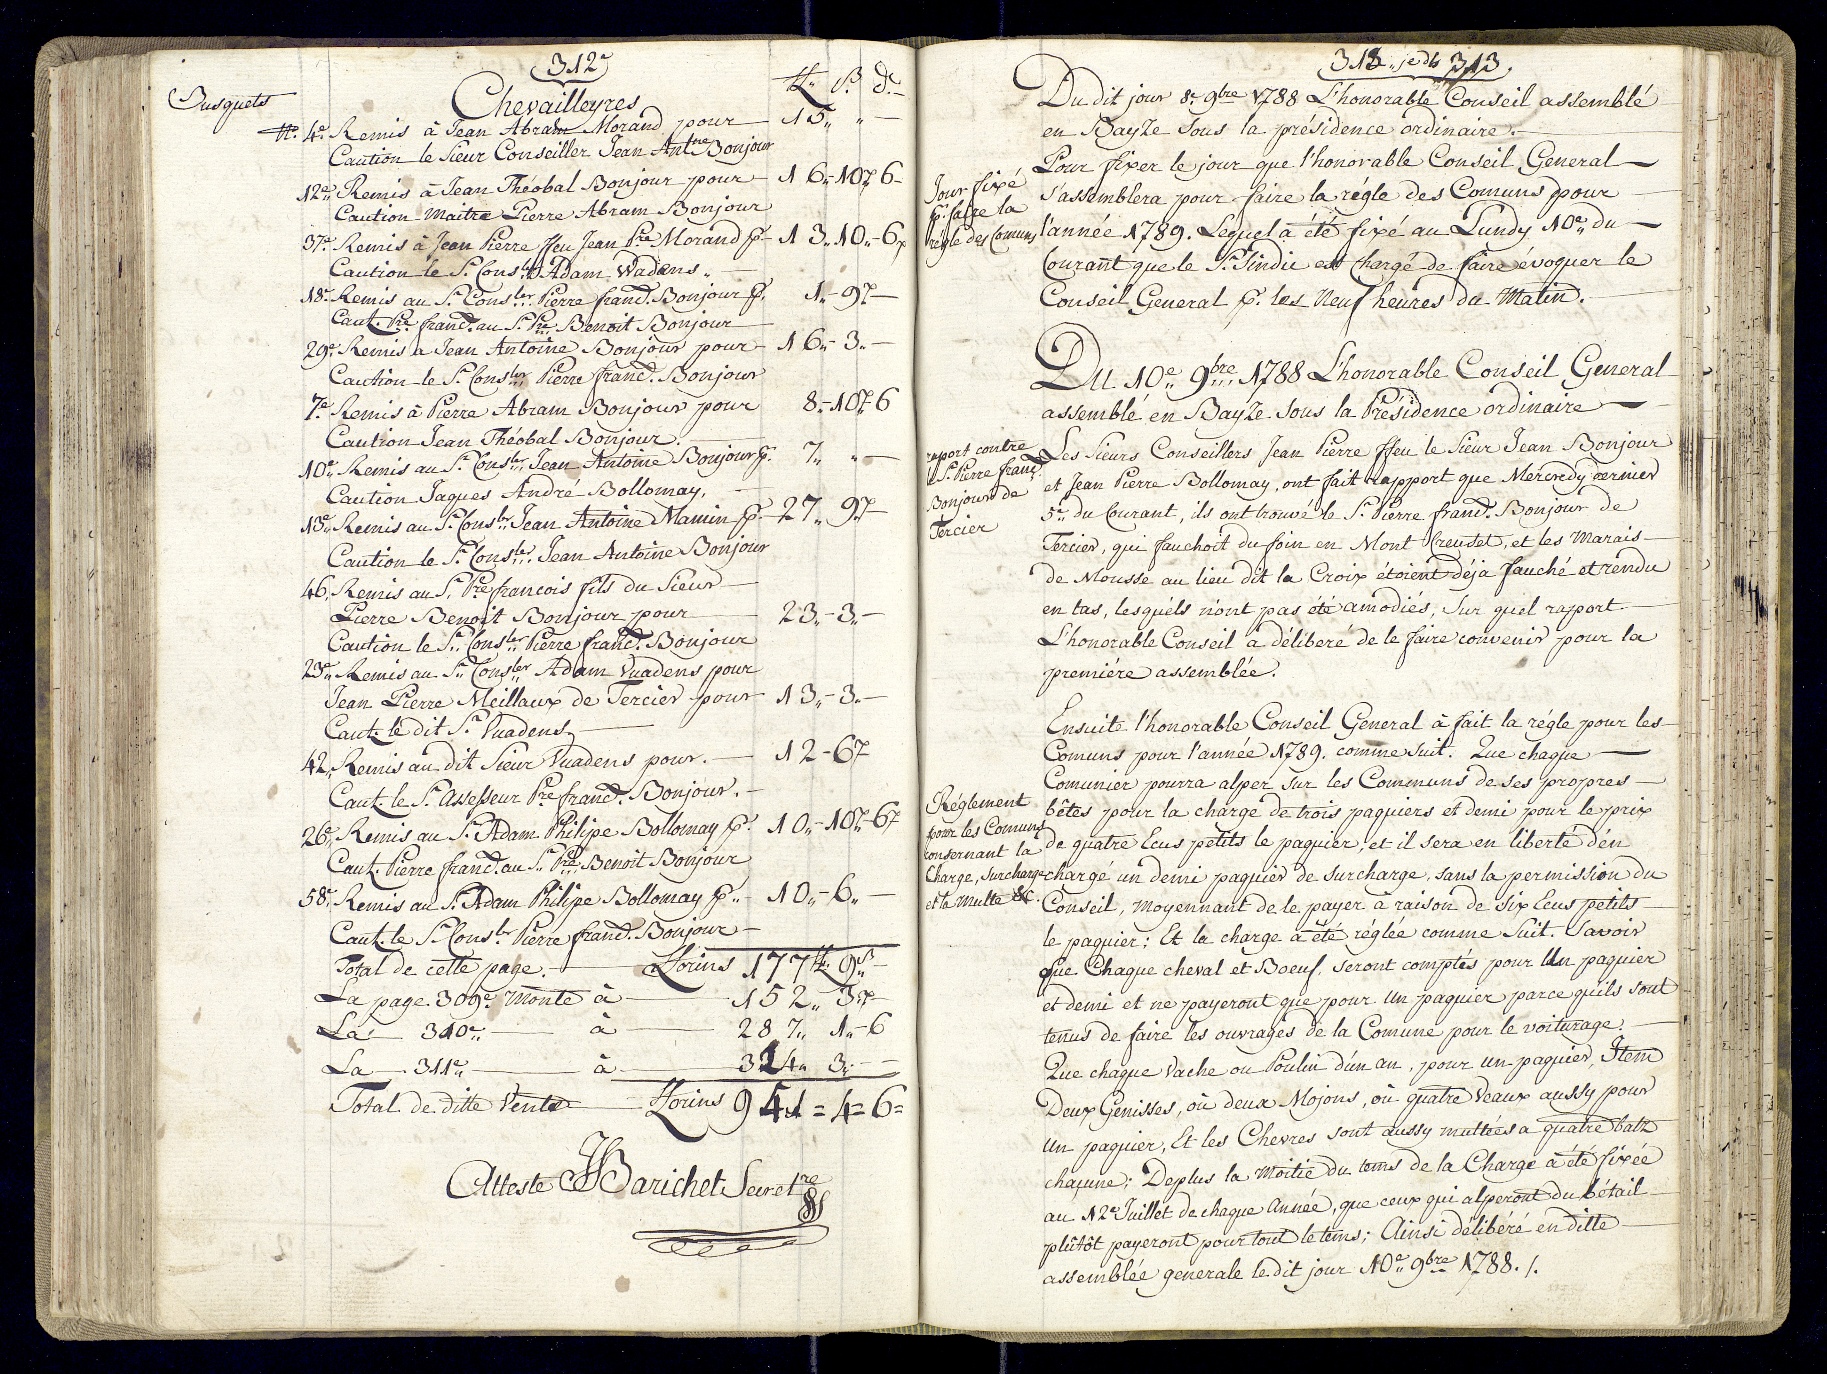 312e
Susquets
Chevailleyres
ff. ß. d.
N. 4e. Remis à Jean Abram Morand pour 15,, ,, —
Caution le Sieur Conseiller Jean Antne Bonjour
12e. Remis à Jean Théobal Bonjour pour 16,,-10,, 6-
Caution Maitre Pierre Abram Bonjour
37e. Remis à Jean Pierre ffeu Jean Pre Morand p. 13,,10,,-6
Caution le Sr. Consler Adam Wadens.
18e. Remis au Sr. Consler Pierre franc̃. Bonjour p. 1,,-9,,—
Caut. Pre franc̃. au Sr. Pre Benoit Bonjour
29e. Remis à Jean Antoine Bonjour pour 16,,-3,,—
Caution le Sr. Consler Pierre franc̃. Bonjour
7e. Remis à Pierre Abram Bonjour pour 8,,-10,, 6
Caution Jean Théobal Bonjour.
10e. Remis au Sr. Consler Jean Antoine Bonjour p. 7,, ,, —
Caution Jaques André Bollomay,
13e. Remis au Sr. Consler Jean Antoine Mamin p. 27,, 9,,—
Caution le Sr. Consler. Jean Antoine Bonjour
46,, Remis au Sr. Pre francois fils du Sieur
Pierre Benoit Bonjour pour 23,,-3,,—
Caution le Sr. Consler Pierre franc̃. Bonjour
23e. Remis au Sr. Consler Adam Vuadens pour
Jean Pierre Meillaux de Tercier pour 13,,-3,,—
Caut. le dit Sr. Vuadens
42,, Remis au dit Sieur Vuadens pour. 12-6,,
Caut. le Sr. Assesseur Pre franc̃. Bonjour.
26e. Remis au Sr. Adam Philipe Bollomay p. 10,,-10,,-6
Caut. Pierre franc̃. au Sr. Pre Benoit Bonjour
58e. Remis au Sr. Adam Philipe Bollomay p. 10,,-6,,—
Caut. le Sr. Consler Pierre franc̃. Bonjour
Total de cette page. fflorins 177 ff. 9 ß —
La page 309e monte à 152,, 3,,—
La 310e. à 287,, 1,,-6
La 311e. à 324,, 3,,—
Total de ditte Vente fflorins 941=4=6=
Atteste Barichet Secretre
313. je dis 313.
Du dit jour 8e. 9bre 1788 L'honorable Conseil assemblé
en Bayze sous la présidence ordinaire.
Pour fixer le jour que l'honorable Conseil General
Jour fixé
s'assemblera pour faire la régle des Comuns pour
p. faire la
l'année 1789. Lequel a été fixé au Lundy 10e. du
régle des Comuns
Courant que le Sr. Sindic est chargé de faire évoquer le
Conseil General p. les Neuf heures du Matin.
Du 10e. 9bre. 1788 L'honorable Conseil General
assemblé en Bayze sous la Présidence ordinaire
raport contre
Les Sieurs Conseillers Jean Pierre ffeu le Sieur Jean Bonjour
le Sr. Pierre franç.
et Jean Pierre Bollomay, ont fait rapport que Mercredy dernier
Bonjour de
5e. du Courant, ils ont trouvé le Sr. Pierre franc̃. Bonjour de
Tercier
Tercier, qui fauchoit du foin en Mont Creuset, et les Marais
de Mousse au lieu dit la Croix étoient déja fauché et rendu
en tas, lesquels n'ont pas été amodiés, Sur quel rapport.
L'honorable Conseil à déliberé de le faire convenir pour la
premiére assemblée.
Ensuite l'honorable Conseil General à fait la régle pour les
Comuns pour l'année 1789. comme Suit. Que chaque
Comunier pourra alper sur les Communs de ses propres
Réglement
bêtes pour la charge de trois paquiers et demi pour le prix
pour les Comuns
de quatre Ecus petits le paquier, et il sera en liberté d'en
consernant la
Charge, Surcharge
chargé un demi paquier de surcharge, sans la permission du
et la Multe &c.
Conseil, moyennant de le payer à raison de Six Ecus petits
le paquier; Et la charge a été réglée comme Suit. Savoir
Que Chaque cheval et Boeuf, seront comptés pour Un paquier
et demi et ne payeront que pour Un paquier parce qu'ils sont
tenus de faire les ouvrages de la Comune pour le voiturage.
Que chaque Vache ou Poulin d'un an, pour un paquier, Item
Deux Genisses, où deux Mojons, où quatre Veaux aussy pour
Un paquier, Et les Chevres sont aussy multées a quatre batz
chacune; Deplus la Moitié du tems de la Charge a été fixée
au 12e. Juillet de chaque Année, que ceux qui alperont du bétail
plûtôt payeront pour tout le tems; Ainsi délibéré en ditte
assemblée generale le dit jour 10e. 9bre 1788. /.